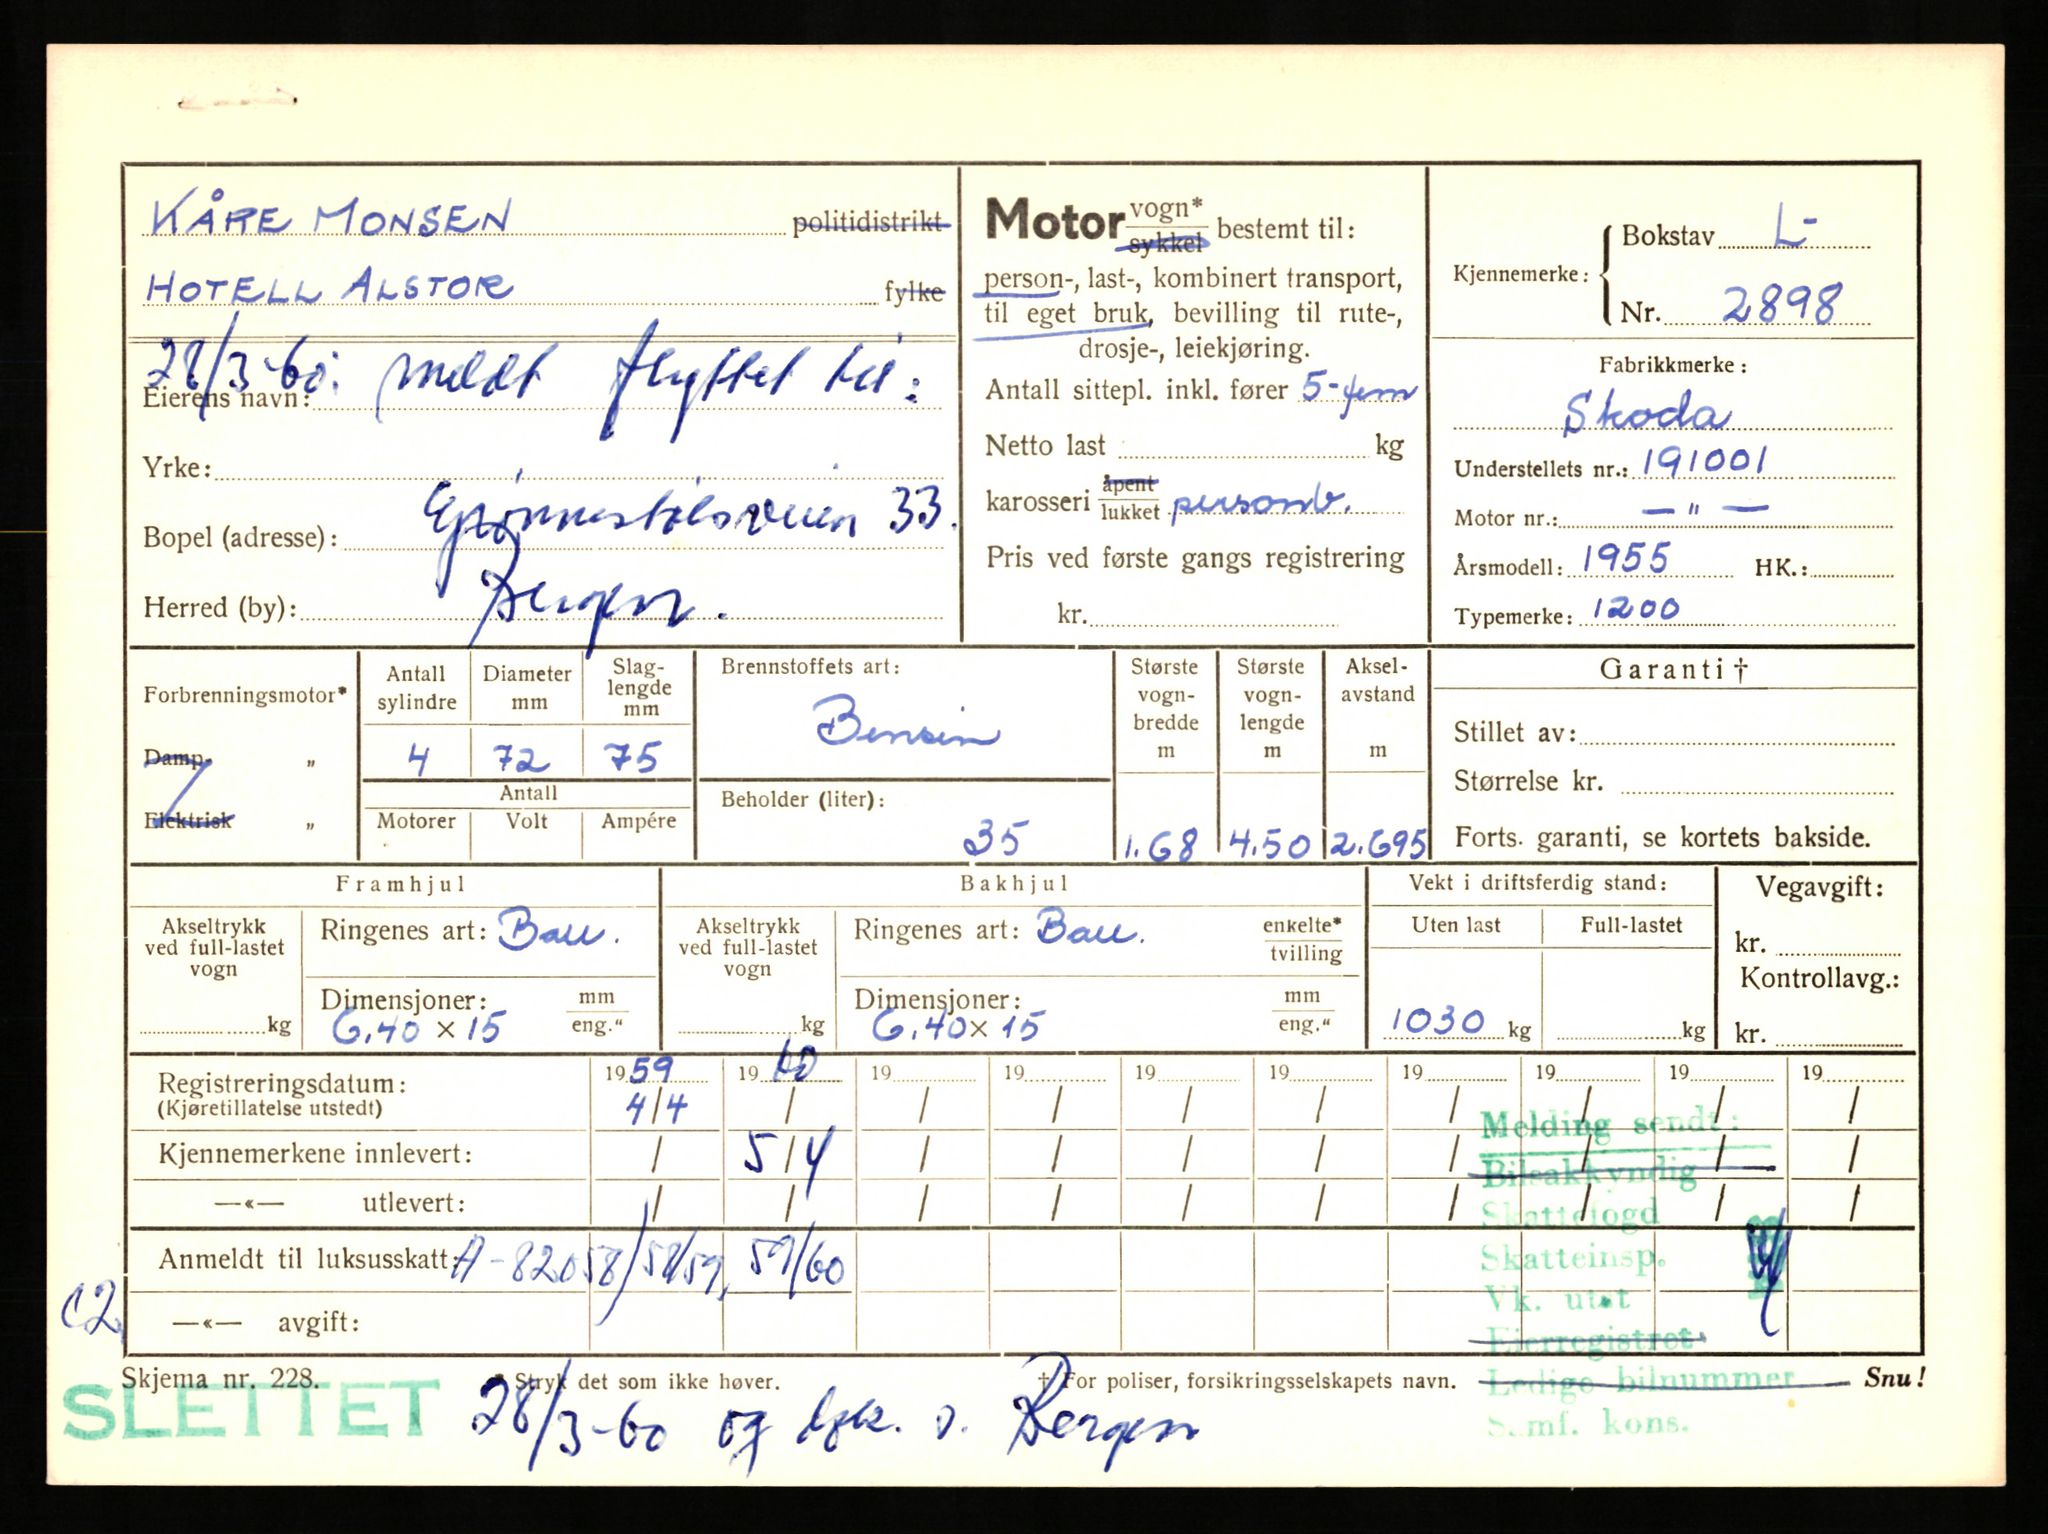 KÅRE MONSEN politidistrikt
HOTELL ALSTOR fylke
28/3-60: meldt flyttet til:
Eierens navn:
Yrke:
Bopel (adresse): Grønnestølsveien 33.
Herred (by): Bergen.
Motor vogn* sykkel bestemt til:
person-, last-, kombinert transport,
til eget bruk, bevilling til rute-,
drosje-, leiekjøring.
Antall sittepl. inkl. fører 5-fem
Netto last kg
karosseri åpent lukket personb.
Pris ved første gangs registrering
kr.
Kjennemerke: Bokstav L-
Nr. 2898
Fabrikkmerke:
Skoda
Understellets nr.: 191001
Motor nr.: — " —
Årsmodell: 1955 HK.:
Typemerke: 1200
Forbrenningsmotor*
Damp- "
Elektrisk "
Antall sylindre 4
Diameter mm 72
Slag-lengde mm 75
Antall
Motorer Volt Ampére
Brennstoffets art:
Bensin
Beholder (liter):
35
Største vogn-bredde m 1.68
Største vogn-lengde m 4.50
Aksel-avstand m 2.695
Garanti †
Stillet av:
Størrelse kr.
Forts. garanti, se kortets bakside.
Framhjul
Akseltrykk ved full-lastet vogn kg
Ringenes art: Ball.
Dimensjoner: mm eng."
6.40 × 15
Bakhjul
Akseltrykk ved full-lastet vogn kg
Ringenes art: Ball. enkelte* tvilling
Dimensjoner: mm eng."
6.40 × 15
Vekt i driftsferdig stand:
Uten last Full-lastet
1030 kg kg
Vegavgift:
kr.
Kontrollavg.:
kr.
Registreringsdatum: 1959 1960 19 19 19 19 19 19 19 19
(Kjøretillatelse utstedt) 4/4 / / / / / / / / /
Kjennemerkene innlevert: / 5/4 / / / / / / / /
—«— utlevert: / / / / / / / / / /
Anmeldt til luksusskatt: A-82058/58/59, 59/60
—«— avgift:
C2
Melding sendt:
Bilsakkyndig
Skattefogd
Skatteinsp.
Vk. utst
Eierregistret
Ledige bilnummer
Samf. kons.
Skjema nr. 228. * Stryk det som ikke høver. † For poliser, forsikringsselskapets navn. Snu!
SLETTET
28/3-60 og bsk. s. Bergen